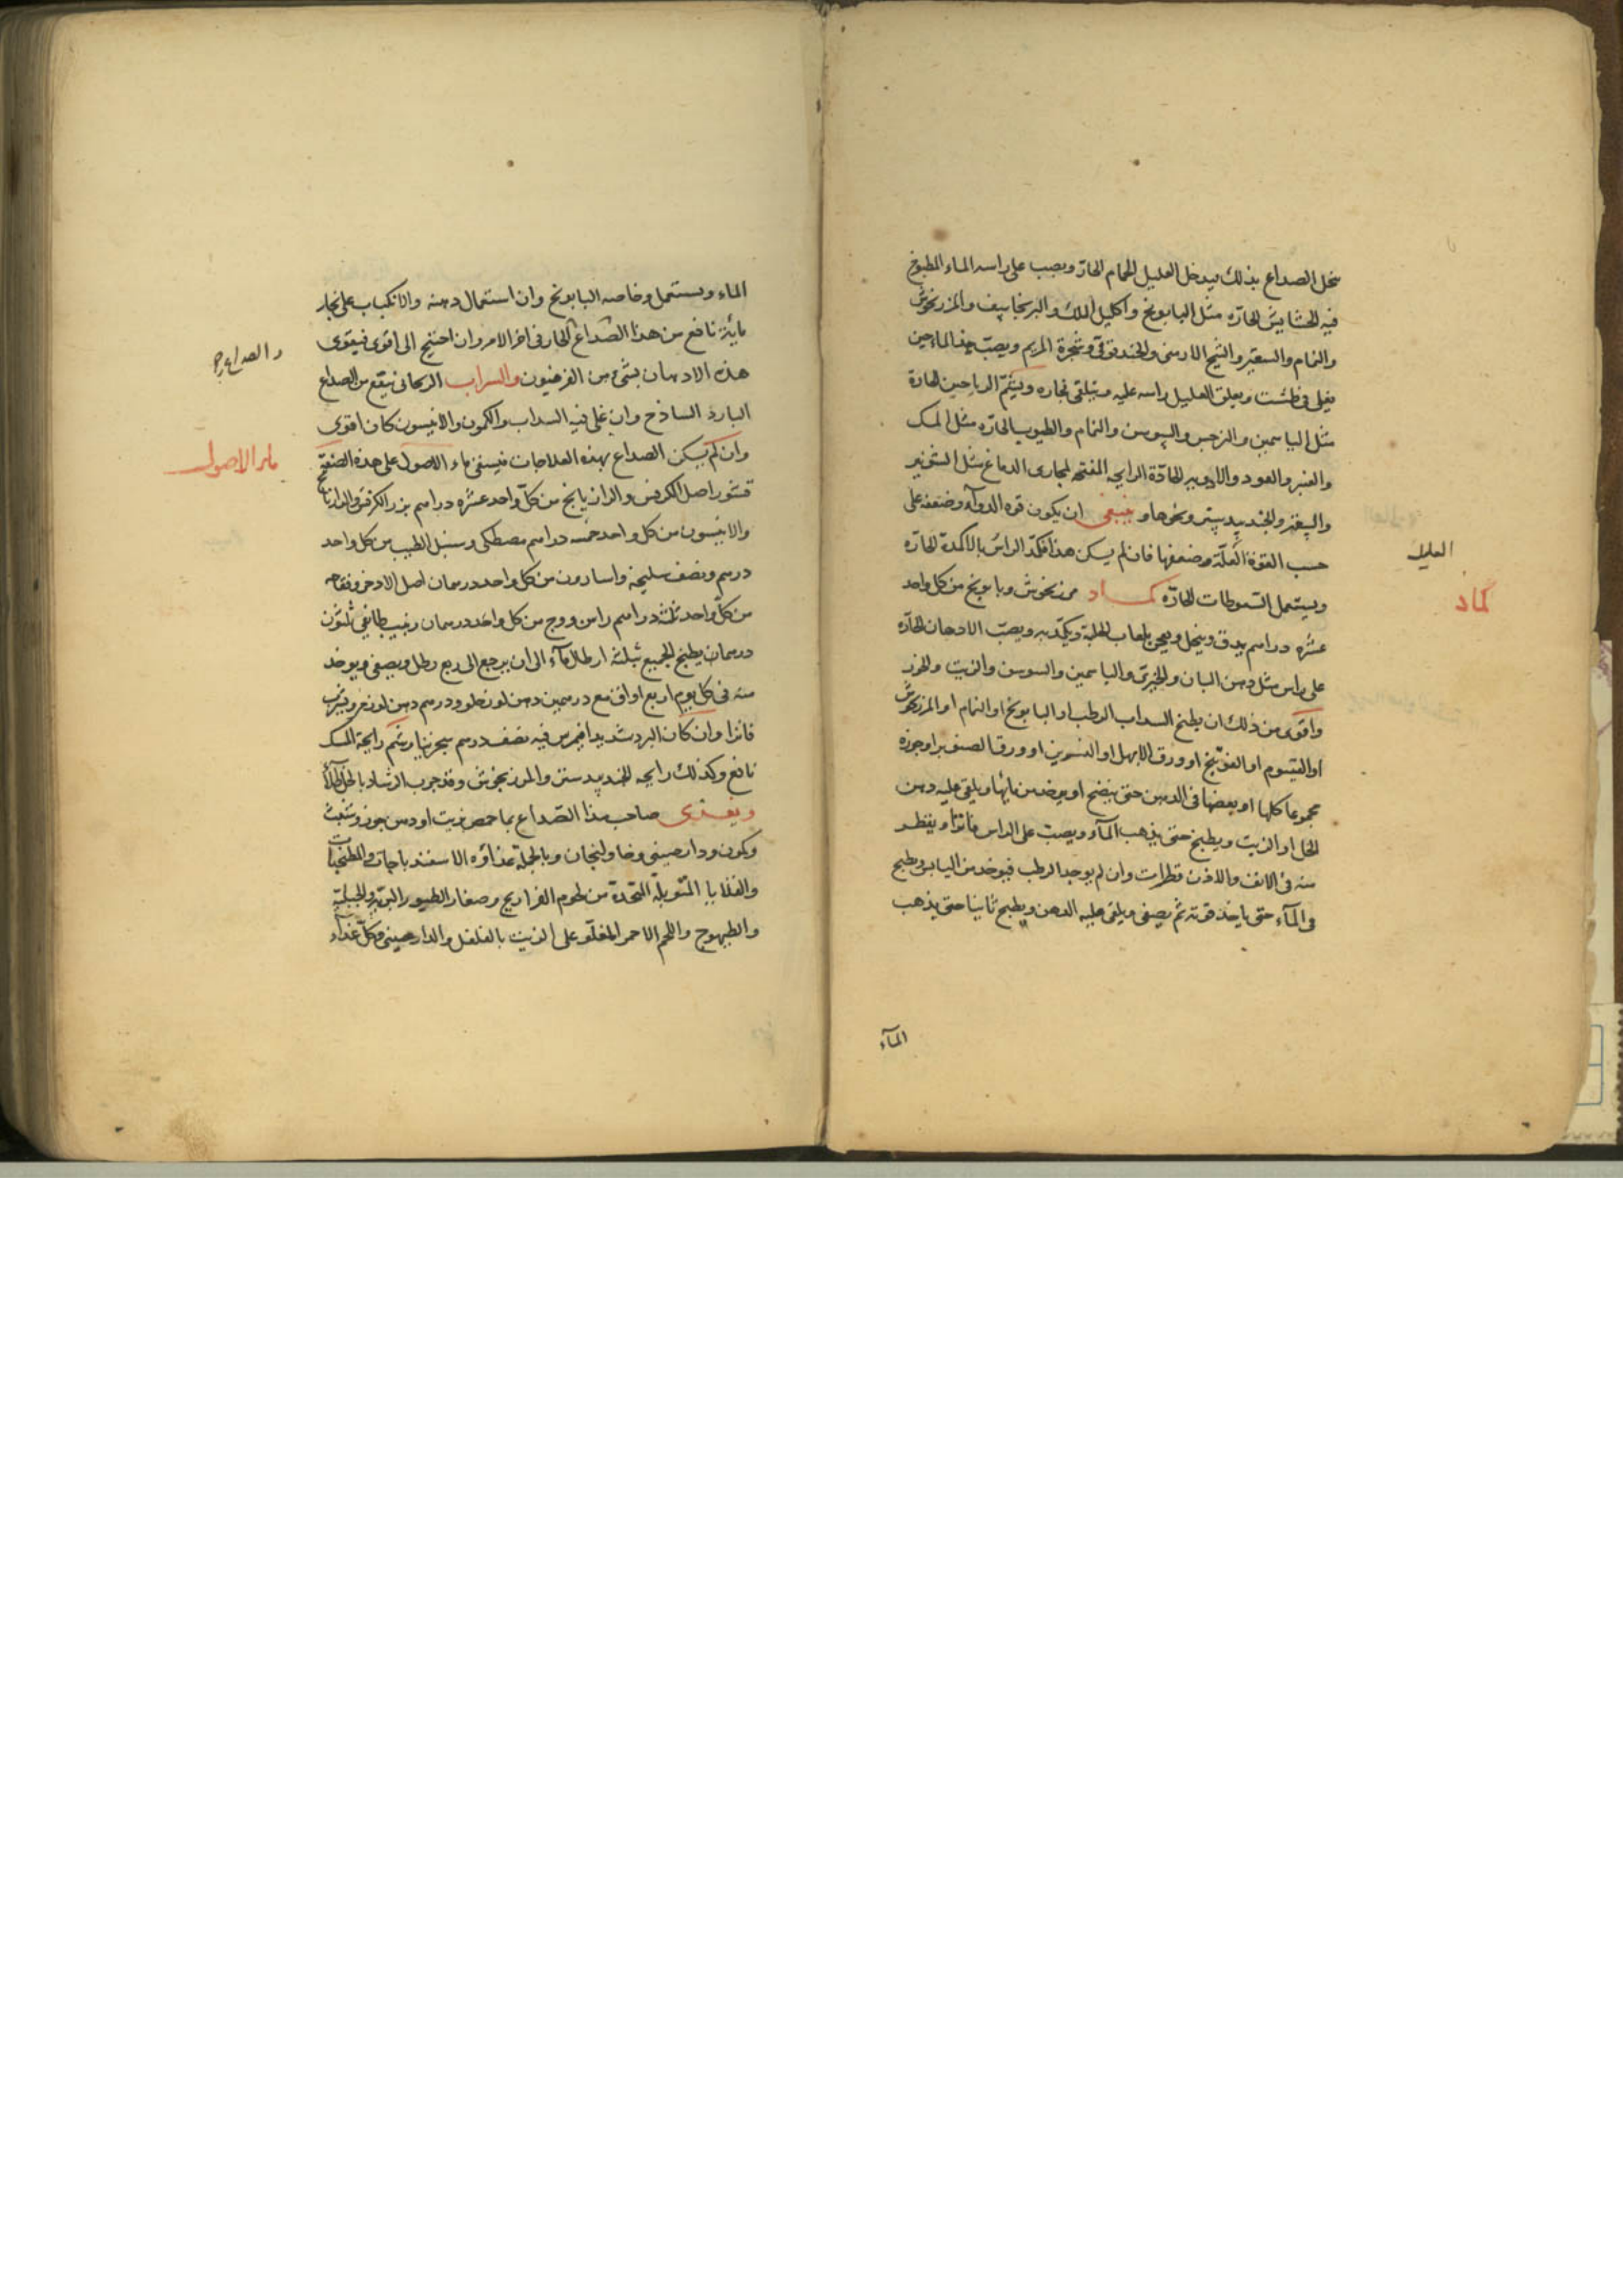 الصداع بذلك فيدخل العليل الحمام الحار ويصب على راسه الماء المطبوخ
فيه الحشايش الحاره مثل البابونج واكليل الملك والبرنجاسيف والمرزنجوش
والنمام والسعتر والشيح الارمنى والحندقوقى وشجرة المريم ويصب هذا الماء حين
يغلى فى طشت ويعلق العليل راسه عليه ويتلقى بخاره ويشم الرياحين الحارة
مثل الياسمين والنرجس والسوسن والنمام والطيوب الحاره مثل المسك
والعنبر والعود والادوية الحادة الرايحه المفتحه لمجارى الدماغ مثل الشونيز
والسعتر والجندبيدستر ونحوها وينبغى ان يكون قوه الدوآء وضعفه على
حسب القوة العلة وضعفها فان لم يسكن هذا فكمد الراس بالاكمدة الحاره
العليل
ويستعمل السعوطات الحاره كماد مرزنجوش وبابونج من كل واحد
كماد
عشره دراهم يدق وينخل ويعجن بلعاب الحلبة ويكمد به ويصب الادهان الحاره
على راس مثل دهن البان والخيرى والياسمين والسوسن والزيت والخرز
واقوى من ذلك ان يطبخ السداب الرطب او البابونج او النمام او المرزنجوش
او القيسوم او الفوتنج او ورق الابهل او النسرين او ورق الصنوبر او جوزه
مجموعا كلها او بعضها فى الدهن حتى ينضج او يوخذ من مايها ويلقى عليه دهن
الخل او الزيت ويطبخ حتى يذهب المآء ويصب على الراس فاترا ويقطر
منه فى الانف والاذن قطرات وان لم يوجد الرطب فيوخذ من اليابس ويطبخ
فى المآء حتى ياخذ قوته ثم يصفى ويلقى عليه الدهن ويطبخ ثانيا حتى يذهب
المآء
الماء ويستعمل وخاصه البابونج وان استعمال دهنه والانكباب على بخار
مائه نافع من هذا الصداع الحار فى اخر الامر وان احتيج الى اقوى فيقوى
هذه الادهان بشىء من الفرفيون والشراب الريحانى ينفع من الصداع
البارد الساذج وان غلى فيه السداب والكمون والانيسون كان اقوى
وان لم يسكن الصداع بهذه العلاجات فيسقى ماء الاصول على هذه الصفة
ماء الاصول
قشور اصل الكرفس والرازيانج من كل واحد عشره دراهم بزر الكرفس والرازيانج
والانيسون من كل واحد خمسه دراهم مصطكى وسنبل الطيب من كل واحد
درهم ونصف سليخه واسارون من كل واحد درهمان اصل الاذخر وفقاحه
من كل واحد ثلثه دراهم راسن ووج من كل واحد درهمان زبيب طايفى ثلثون
درهمان يطبخ الجميع بثلثه ارطال مآء الى ان يرجع الى ربع رطل ويصفى ويوخذ
منه فى كل يوم اربع اواق مع درهمين دهن لوز حلو ودرهم دهن لوز مر ويشرب
فاترا وان كان البرد شديدا فيمرس فيه نصف درهم سجزنيا وشم رايحة المسك
نافع وكذلك رايحه الجندبيدستر والمرزنجوش وقد جرب الرشاد بالخل طلآ
ويغذى صاحب هذا الصداع بماحمص بزيت او دهن جوز وشبث
وكمون ودارصينى وخاولنجان وبالجملة غذاؤه الاسفندباجات والمطنجنات
والقلايا المتوبلة المتخذة من لحوم الفراريج وصغار الطيور البرية والجبلية
والطيهوج واللحم الاحمر المقلو على الزيت بالفلفل والدارصينى وكل غذآء